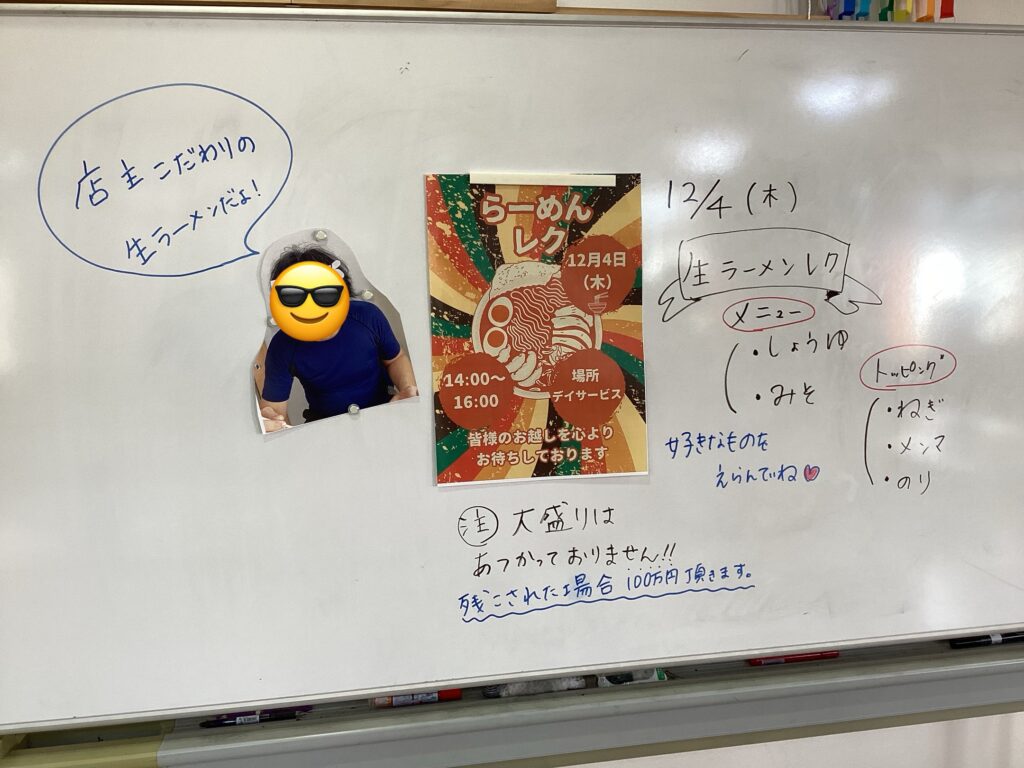 店主こだわりの
生ラーメンだよ!
らーめん
レク
12月4日
(木)
14:00〜
16:00
場所
デイサービス
皆様のお越しを心より
お待ちしております
12/4 (木)
生ラーメンレク
メニュー
・しょうゆ
・みそ
トッピング
・ねぎ
・メンマ
・のり
好きなものを
えらんでね
注 大盛りは
あつかっておりません!!
残こされた場合 100万円頂きます。